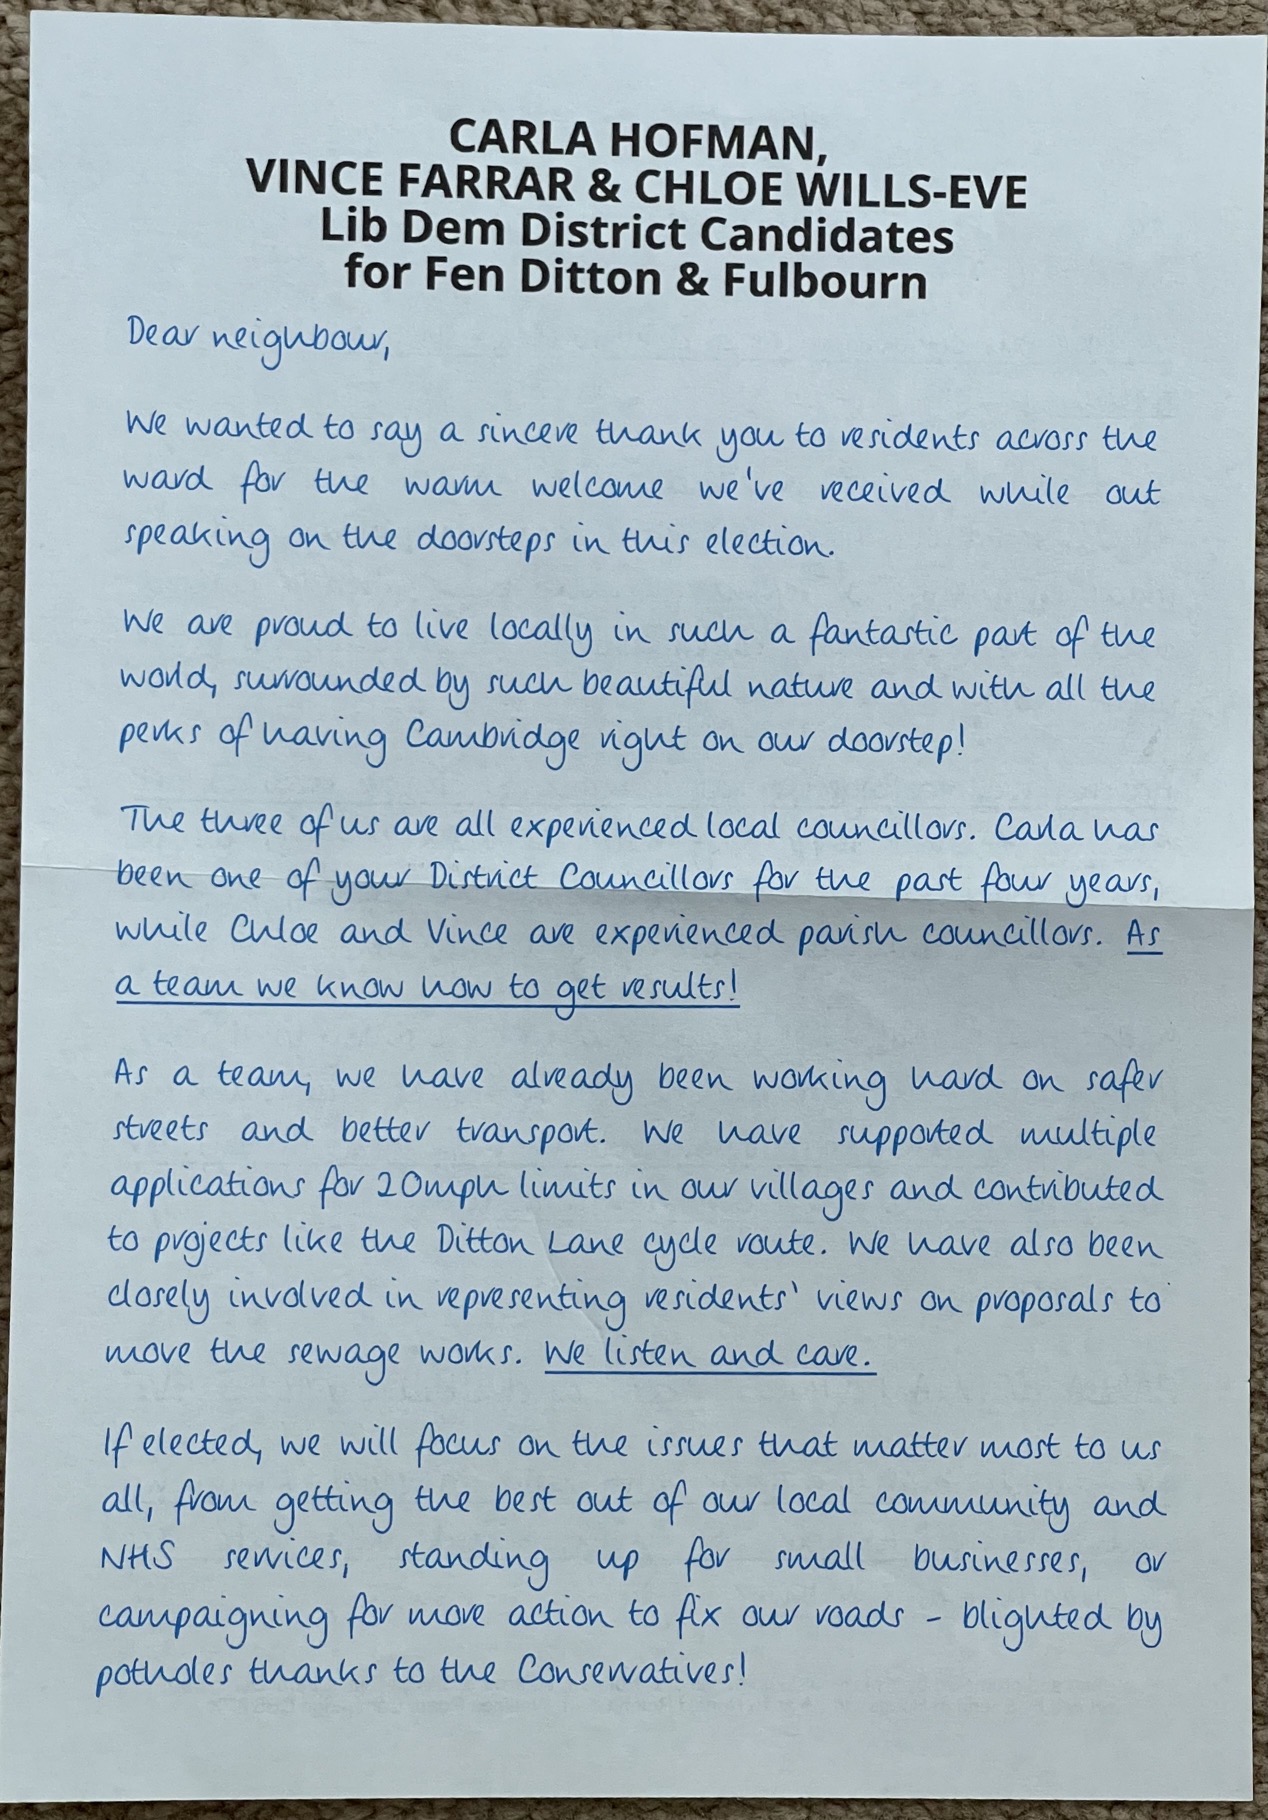 CARLA HOFMAN,
VINCE FARRAR & CHLOE WILLS-EVE
Lib Dem District Candidates
for Fen Ditton & Fulbourn
Dear neighbour,
We wanted to say a sincere thank you to residents across the
ward for the warm welcome we've received while out
speaking on the doorsteps in this election.
We are proud to live locally in such a fantastic part of the
world, surrounded by such beautiful nature and with all the
perks of having Cambridge right on our doorstep!
The three of us are all experienced local councillors. Carla has
been one of your District Councillors for the past four years,
while Chloe and Vince are experienced parish councillors. As
a team we know how to get results!
As a team, we have already been working hard on safer
streets and better transport. We have supported multiple
applications for 20mph limits in our villages and contributed
to projects like the Ditton Lane cycle route. We have also been
closely involved in representing residents' views on proposals to
move the sewage works. We listen and care.
If elected, we will focus on the issues that matter most to us
all, from getting the best out of our local community and
NHS services, standing up for small businesses, or
campaigning for more action to fix our roads - blighted by
potholes thanks to the Conservatives!